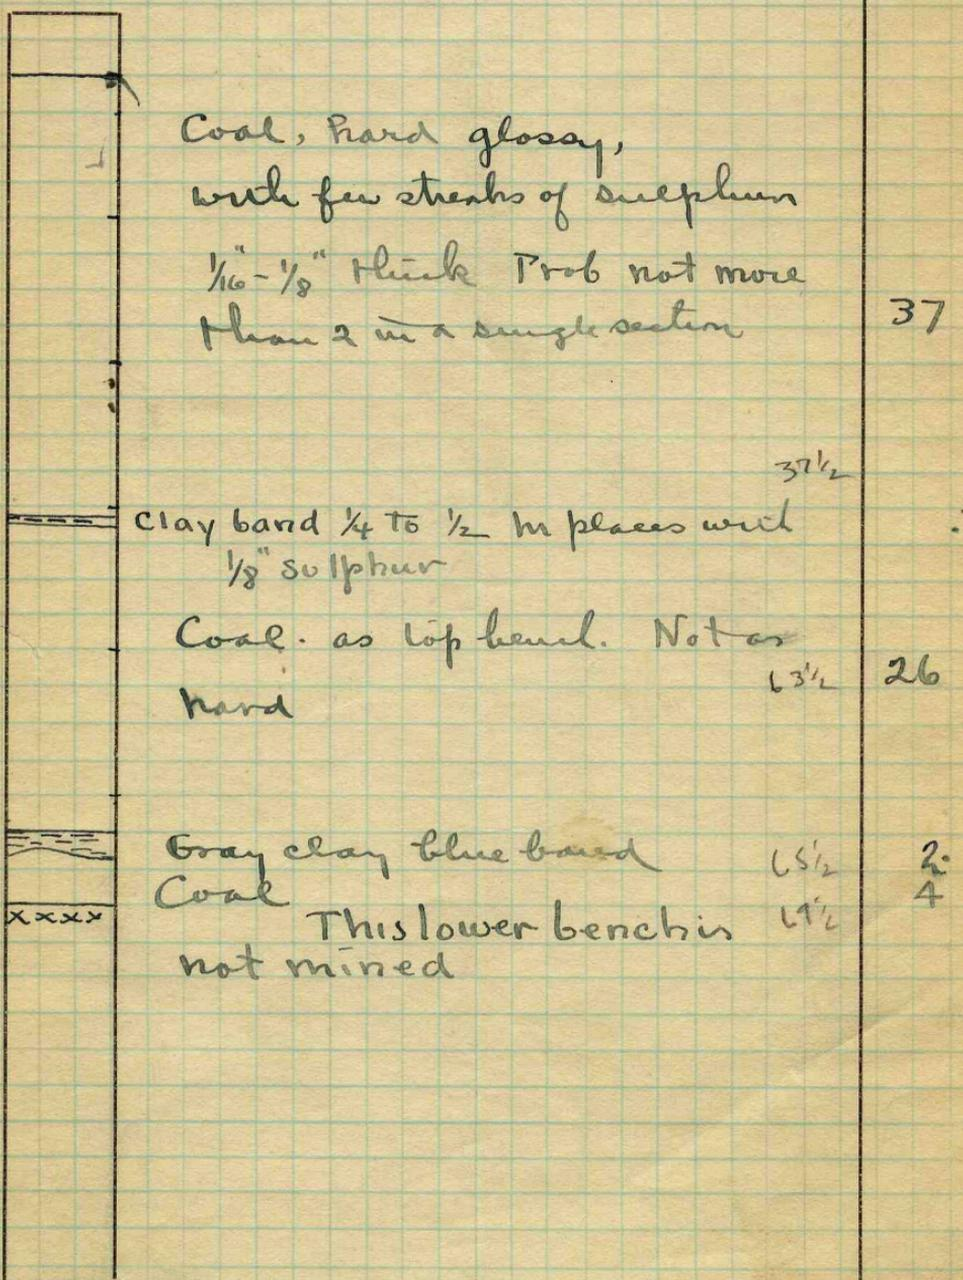 Coal, hard glossy,
with few streaks of sulphur
1/16" - 1/8" thick Prob not more
than 2 in a single section
37
37 1/2
Clay band 1/4 to 1/2 in places with
1/8" sulphur
Coal. as top bench. Not as
63 1/2 26
hard
Gray clay blue band 65 1/2 2
Coal 4
This lower bench is 69 1/2
not mined
xxxx